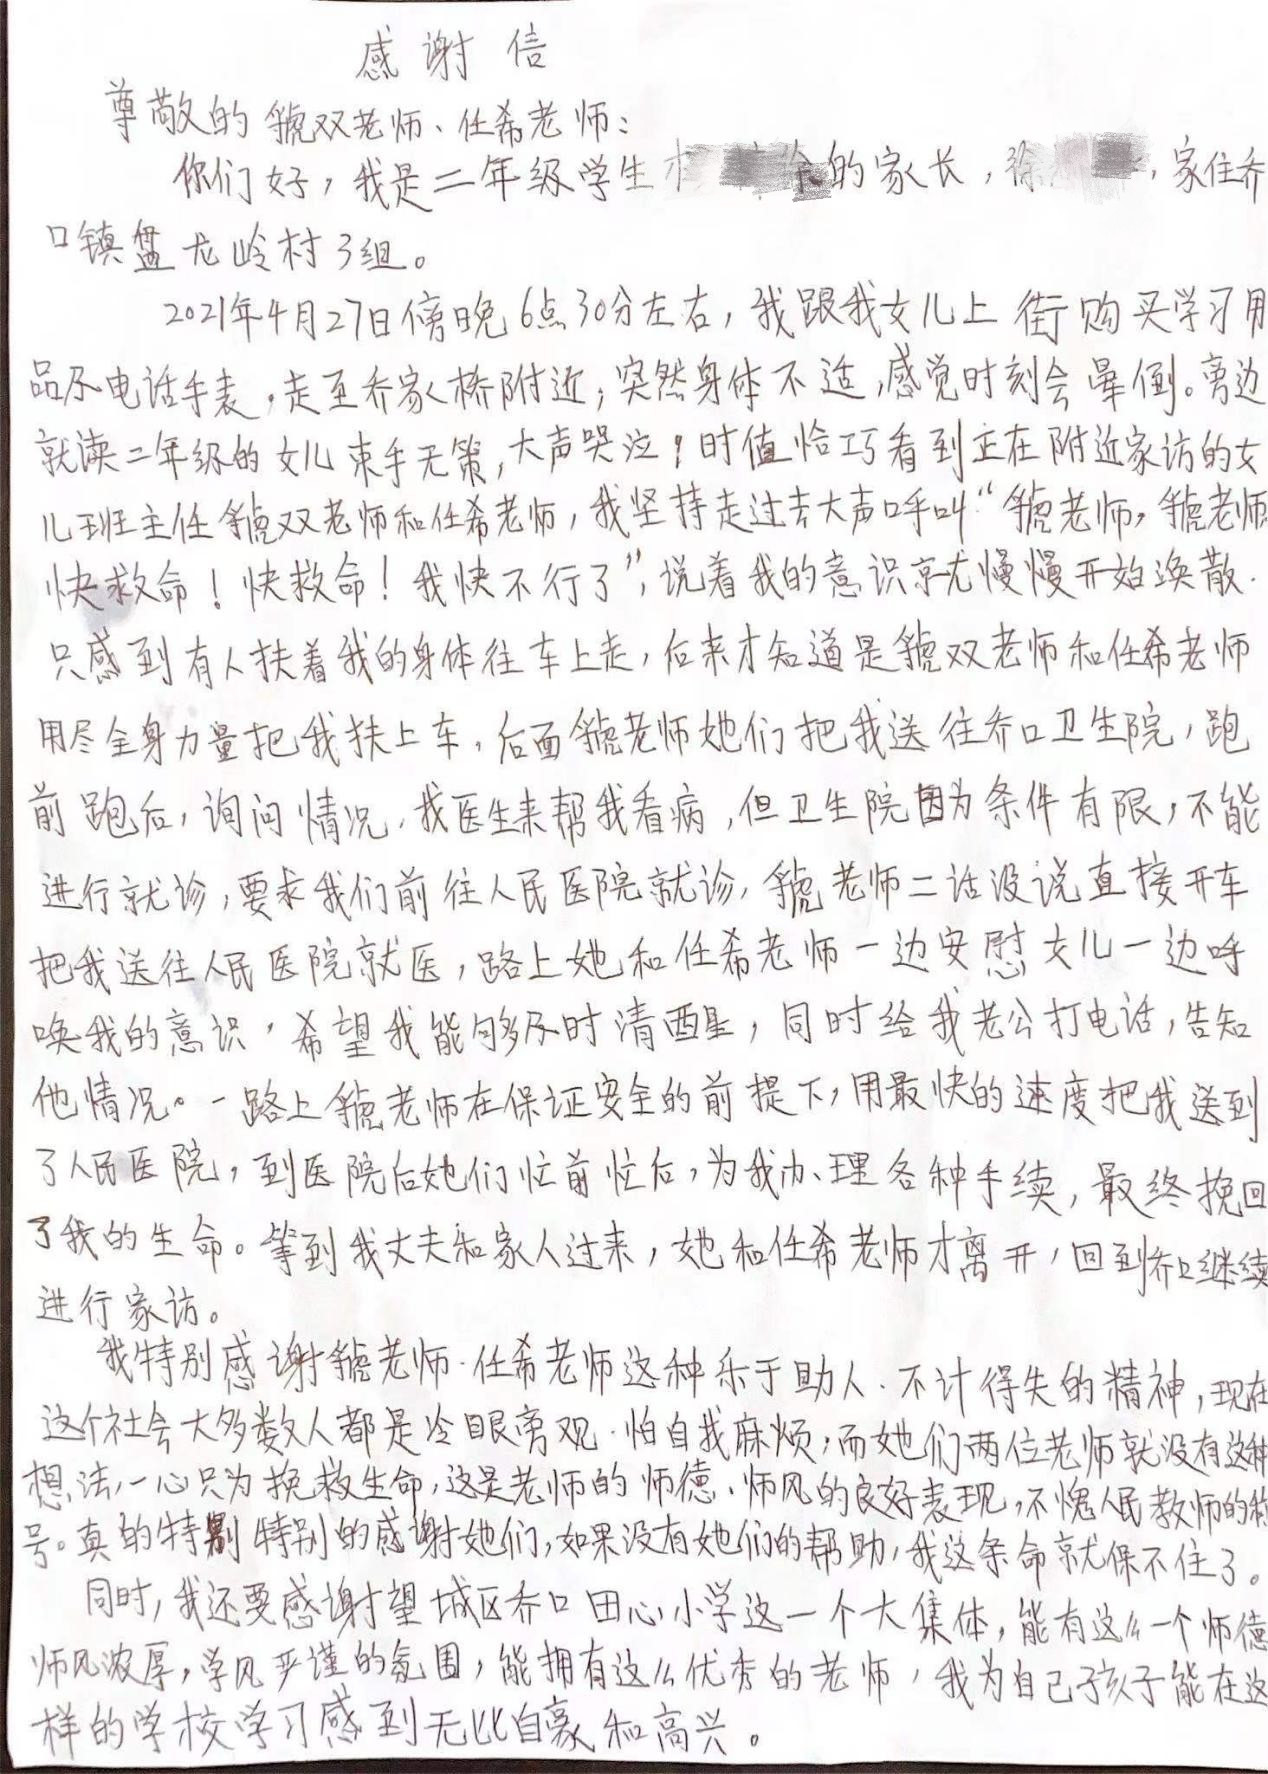 感谢信
尊敬的虢双老师、任希老师：
你们好，我是二年级学生的家长，徐，家住乔
口镇盘龙岭村3组。
2021年4月27日傍晚6点30分左右，我跟我女儿上街购买学习用
品及电话手表，走至乔家桥附近，突然身体不适，感觉时刻会晕倒。旁边
就读二年级的女儿束手无策，大声哭泣！时值恰巧看到正在附近家访的女
儿班主任虢双老师和任希老师，我坚持走过去大声呼叫“虢老师，虢老师
快救命！快救命！我快不行了”，说着我的意识就慢慢开始涣散.
只感到有人扶着我的身体往车上走，后来才知道是虢双老师和任希老师
用尽全身力量把我扶上车，后面虢老师她们把我送往乔口卫生院，跑
前跑后，询问情况，找医生来帮我看病，但卫生院因为条件有限，不能
进行就诊，要求我们前往人民医院就诊，虢老师二话没说直接开车
把我送往人民医院就医，路上她和任希老师一边安慰女儿一边呼
唤我的意识，希望我能够及时清醒，同时给我老公打电话，告知
他情况。一路上虢老师在保证安全的前提下，用最快的速度把我送到
了人民医院，到医院后她们忙前忙后，为我办理各种手续，最终挽回
了我的生命。等到我丈夫和家人过来，她和任希老师才离开，回到乔口继续
进行家访。
我特别感谢虢老师、任希老师这种乐于助人、不计得失的精神，现在
这个社会大多数人都是冷眼旁观、怕自我麻烦，而她们两位老师就没有这种
想法，一心只为挽救生命，这是老师的师德、师风的良好表现，不愧人民教师的称
号。真的特别特别的感谢她们，如果没有她们的帮助，我这条命就保不住了。
同时，我还要感谢望城区乔口田心小学这一个大集体，能有这么一个师德
师风浓厚，学风严谨的氛围，能拥有这么优秀的老师，我为自己孩子能在这
样的学校学习感到无比自豪和高兴。